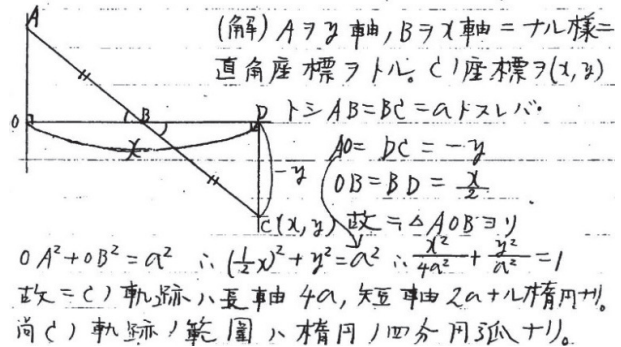 A
(解)Aヲy軸,Bヲx軸ニナル様ニ
直角座標ヲトル。Cノ座標ヲ(x,y)
O B D トシAB=BC=aトスレバ.
AO=DC=-y
x -y OB=BD=x/2
C(x,y) 故ニ△AOBヨリ
OA²+OB²=a² ∴(1/2 x)²+y²=a² ∴x²/4a²+y²/a²=1
故ニCノ軌跡ハ長軸4a,短軸2aナル楕円ナリ。
尚Cノ軌跡ノ範囲ハ楕円ノ四分円弧ナリ。